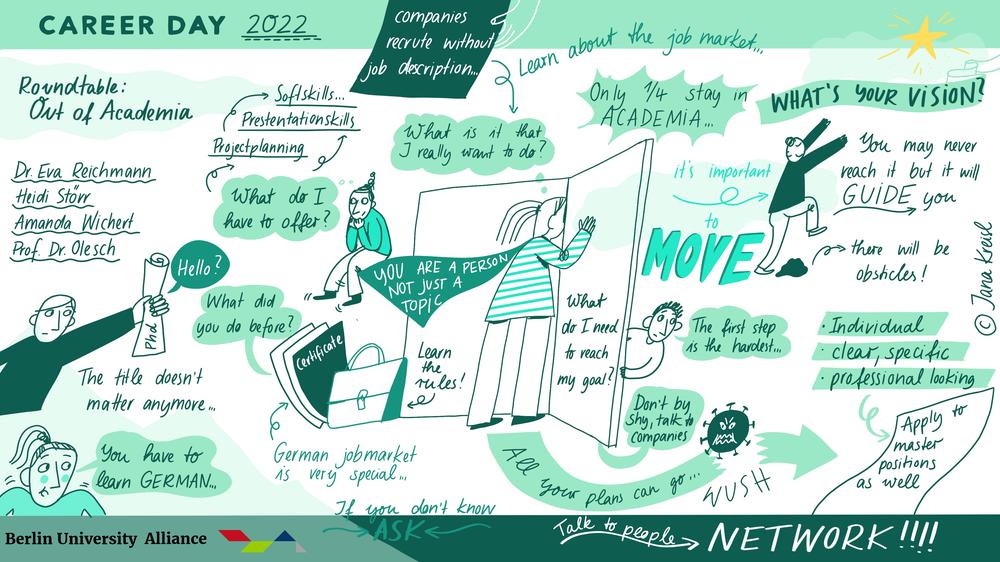 CAREER DAY 2022
companies
recrute without
job description...
Learn about the job market...
Roundtable:
Out of Academia
Softskills...
Prestentationskills
Projectplanning
What is it that
I really want to do?
Only 1/4 stay in
ACADEMIA...
WHAT'S YOUR VISION?
Dr. Eva Reichmann
Heidi Störr
Amanda Wichert
Prof. Dr. Olesch
What do I
have to offer?
it's important
to
MOVE
You may never
reach it but it will
GUIDE you
there will be
obsticles!
© Jana Kreisl
Hello?
Phd
YOU ARE A PERSON
NOT JUST A
TOPIC
What did
you do before?
Certificate
Learn
the
rules!
What
do I need
to reach
my goal?
The first step
is the hardest...
· Individual
· clear, specific
· professional looking
The title doesn't
matter anymore...
Don't by
shy, talk to
companies
Apply to
master
positions
as well
You have to
learn GERMAN...
German jobmarket
is very special...
All your plans can go...
WUSH
If you don't know
ASK
Berlin University Alliance
Talk to people
NETWORK!!!!